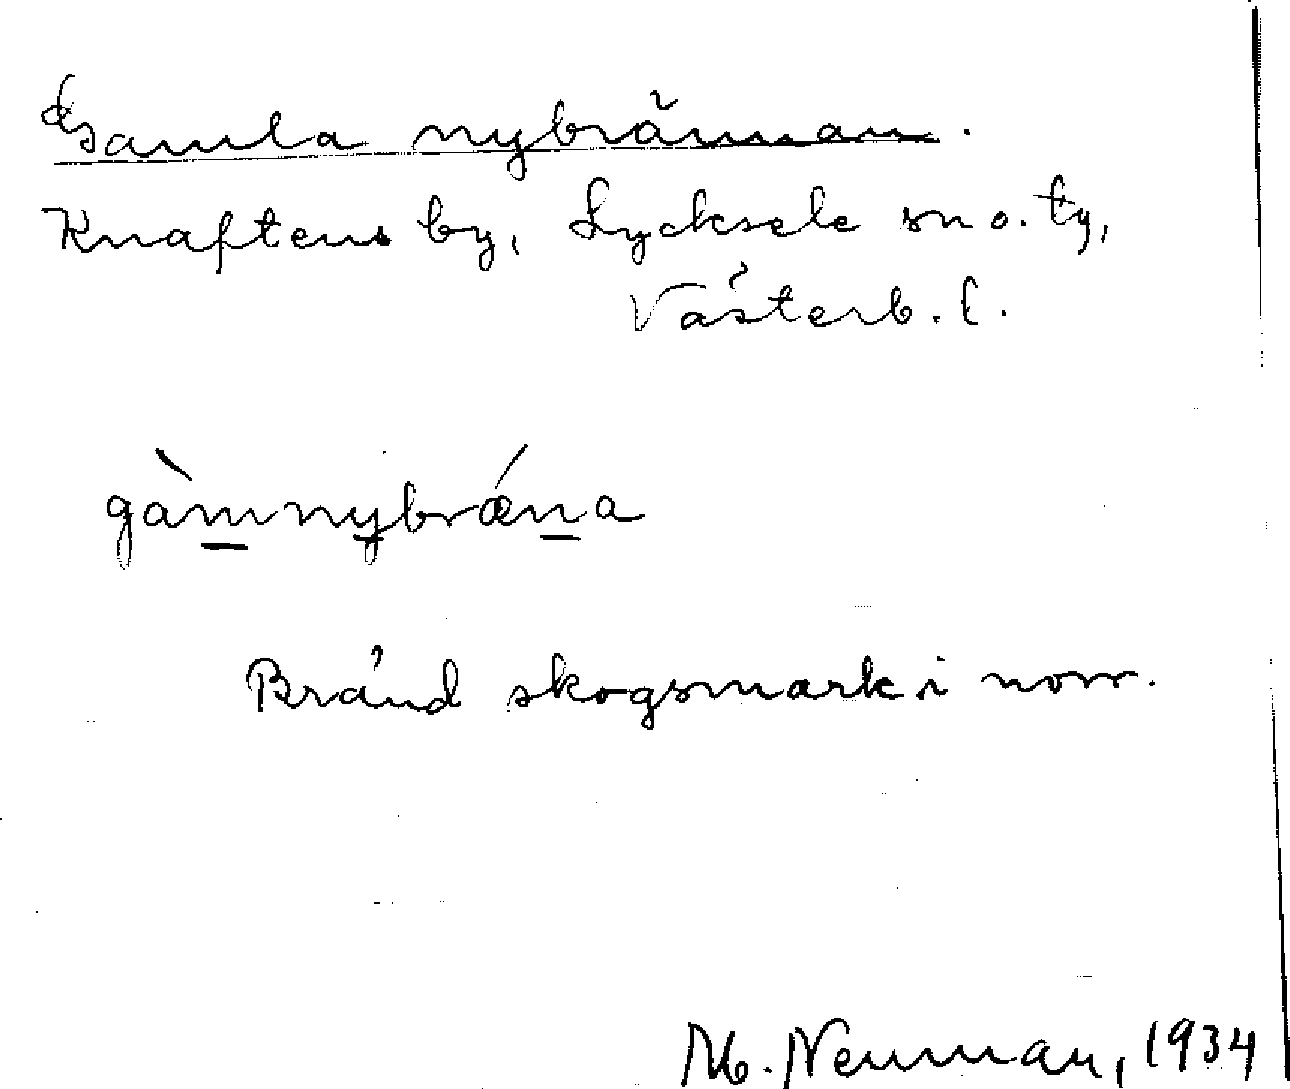 Gamla nybrännan.
Knaftens by, Lycksele sn o. ty,
Västerb. l.
gàmnybrǽna
Bränd skogsmark i norr.
M. Neuman, 1934